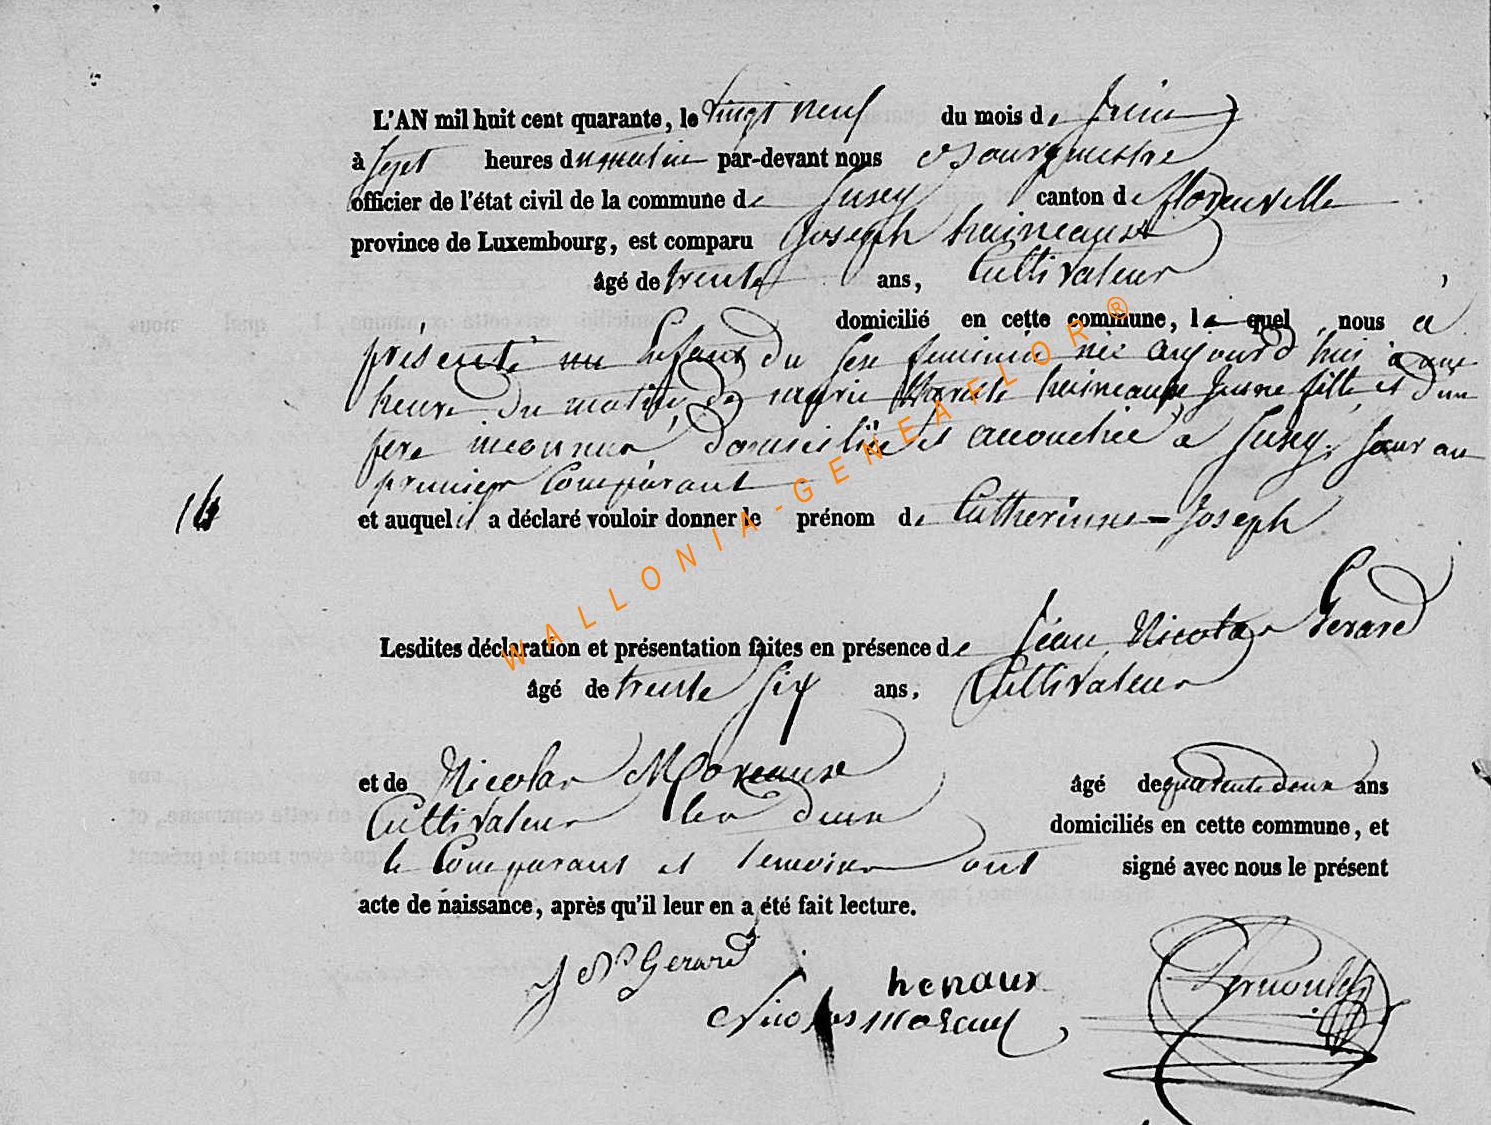 L'AN mil huit cent quarante, le vingt neuf du mois de Juin
à Sept heures du matin par-devant nous Bourgmestre
officier de l'état civil de la commune de Jusey canton de florenville
province de Luxembourg, est comparu Joseph haineaux
âgé de trente ans, Cultivateur
domicilié en cette commune, lequel nous a
présenté un Enfant du sexe feminin née aujourd'hui à une
heure du matin, de marie haineaux jeune fille et d'un
père inconnu, domiciliée et accouchée à Jusey, Sœur au
premier Comparant
14
et auquel il a déclaré vouloir donner le prénom de Catherinne - Joseph
Lesdites déclaration et présentation faites en présence de Jean Nicolas Gerard
âgé de trente Six ans, Cultivateur
et de Nicolas Moreaux âgé de quarente deux ans
Cultivateur les deux domiciliés en cette commune, et
le Comparant et temoins ont signé avec nous le présent
acte de naissance, après qu'il leur en a été fait lecture.
J N Gerard
henaux
Nicolas Moreaux
WALLONIA-GENEAFLOR ®